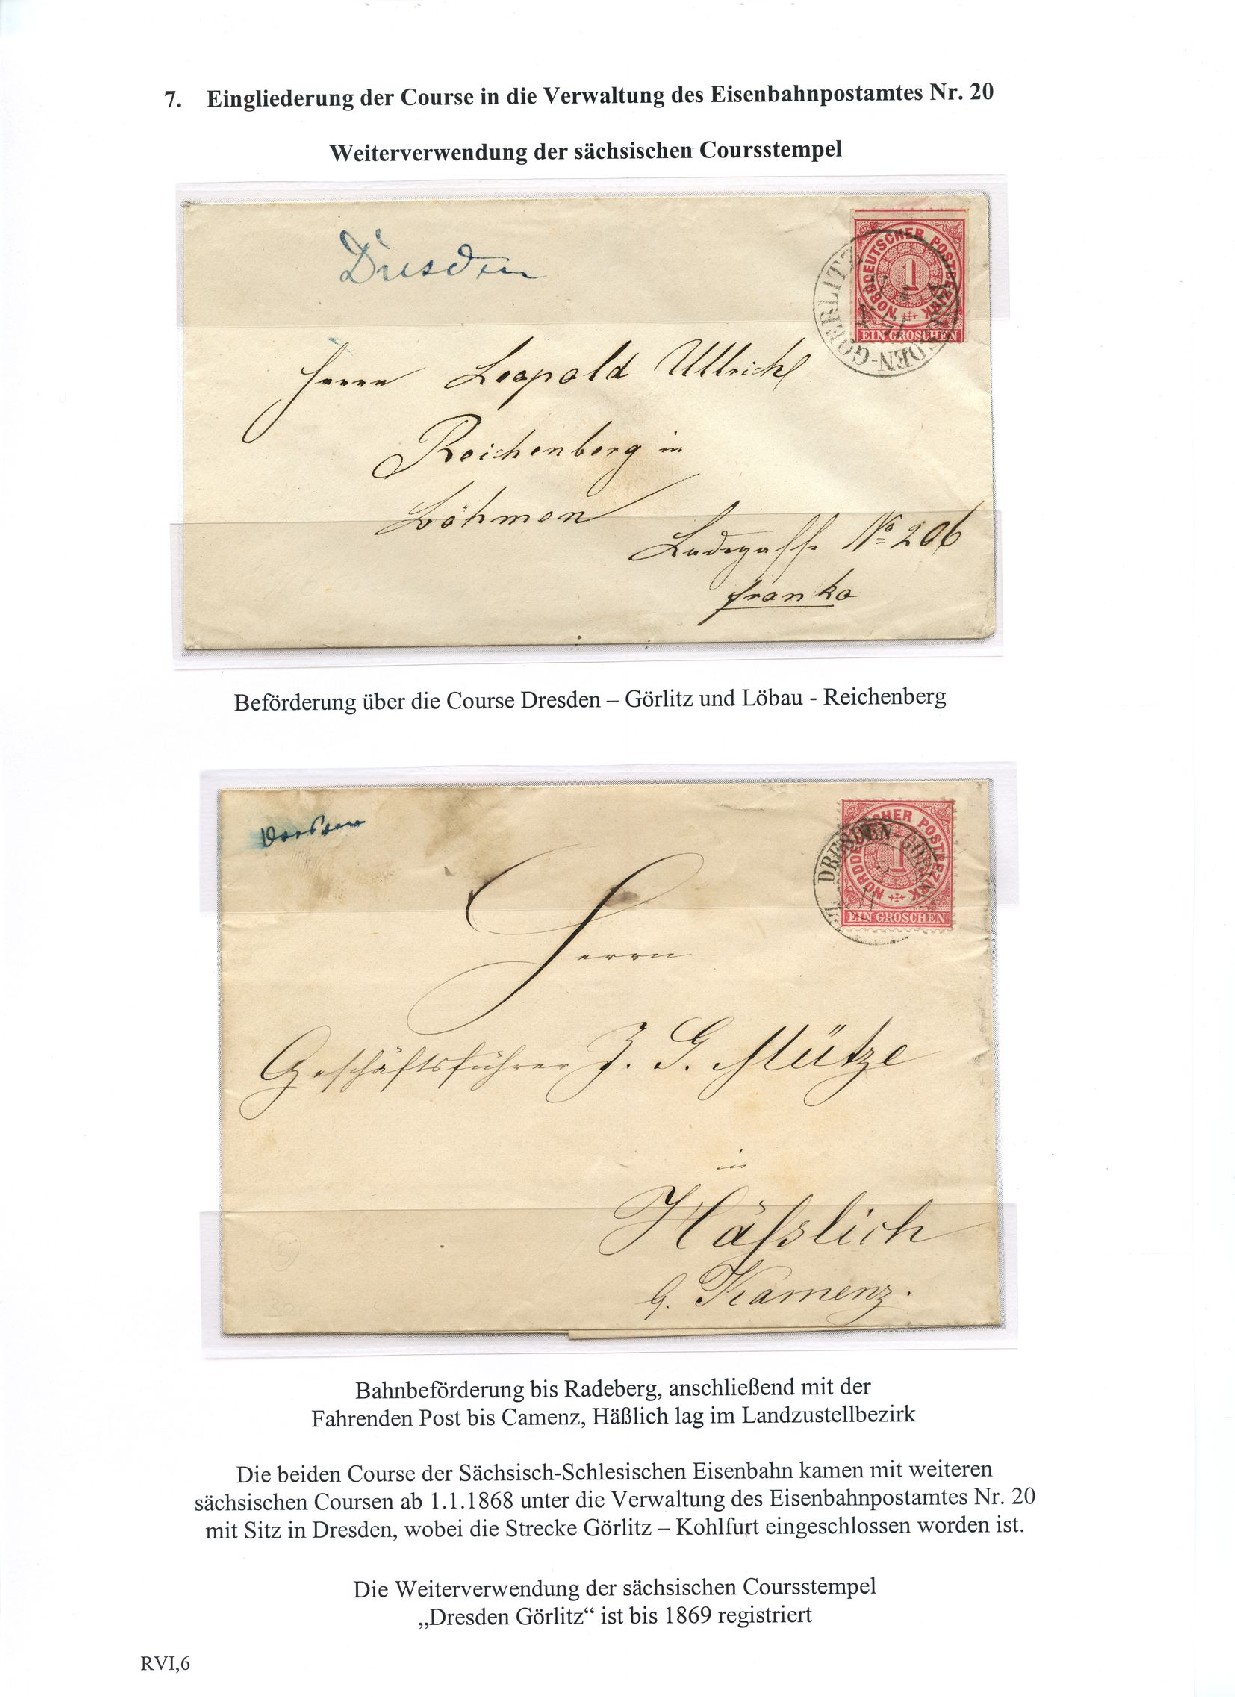 7. Eingliederung der Course in die Verwaltung des Eisenbahnpostamtes Nr. 20
Weiterverwendung der sächsischen Coursstempel
Dresden
NORDDEUTSCHER POSTBEZIRK
1
EIN GROSCHEN
DRESDEN-GOERLITZ
Herrn Leopold Ullrich
Reichenberg in
Böhmen
No 206
franko
Beförderung über die Course Dresden – Görlitz und Löbau - Reichenberg
Dresden
NORDDEUTSCHER POSTBEZIRK
1
EIN GROSCHEN
DRESDEN-GOERLITZ
Herrn
Geschäftsführer J. G. Mütze
in
Häſslich
b. Kamenz.
Bahnbeförderung bis Radeberg, anschließend mit der
Fahrenden Post bis Camenz, Häßlich lag im Landzustellbezirk
Die beiden Course der Sächsisch-Schlesischen Eisenbahn kamen mit weiteren
sächsischen Coursen ab 1.1.1868 unter die Verwaltung des Eisenbahnpostamtes Nr. 20
mit Sitz in Dresden, wobei die Strecke Görlitz – Kohlfurt eingeschlossen worden ist.
Die Weiterverwendung der sächsischen Coursstempel
„Dresden Görlitz“ ist bis 1869 registriert
RVI,6